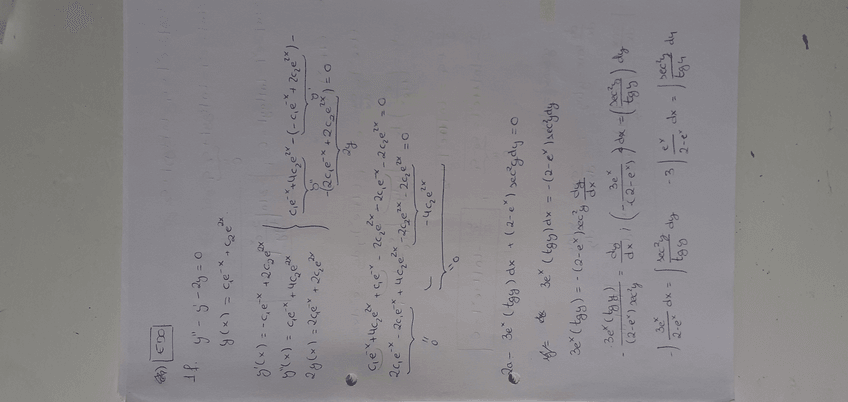 ED
1f. y'' - y' - 2y = 0
y(x) = c₁e⁻ˣ + c₂e²ˣ
y'(x) = -c₁e⁻ˣ + 2c₂e²ˣ
y''(x) = c₁e⁻ˣ + 4c₂e²ˣ
2y(x) = 2c₁e⁻ˣ + 2c₂e²ˣ
c₁e⁻ˣ + 4c₂e²ˣ - (-c₁e⁻ˣ + 2c₂e²ˣ) -
y'' y'
-(2c₁e⁻ˣ + 2c₂e²ˣ) = 0
2y
c₁e⁻ˣ + 4c₂e²ˣ + c₁e⁻ˣ - 2c₂e²ˣ - 2c₁e⁻ˣ - 2c₂e²ˣ = 0
2c₁e⁻ˣ - 2c₁e⁻ˣ + 4c₂e²ˣ - 2c₂e²ˣ - 2c₂e²ˣ = 0
0 -4c₂e²ˣ
0
2a - 3eˣ(tgy)dx + (2-eˣ)sec²y dy = 0
3eˣ(tgy)dx = -(2-eˣ)sec²y dy
3eˣ(tgy) = -(2-eˣ)sec²y dy/dx
- 3eˣ(tgy)/(2-eˣ)sec²y = dy/dx ; (- 3eˣ/(2-eˣ)) dx = (sec²y/tgy) dy
-∫ 3eˣ/2-eˣ dx = ∫ sec²y/tgy dy -3 ∫ eˣ/2-eˣ dx = ∫ sec²y/tgy dy